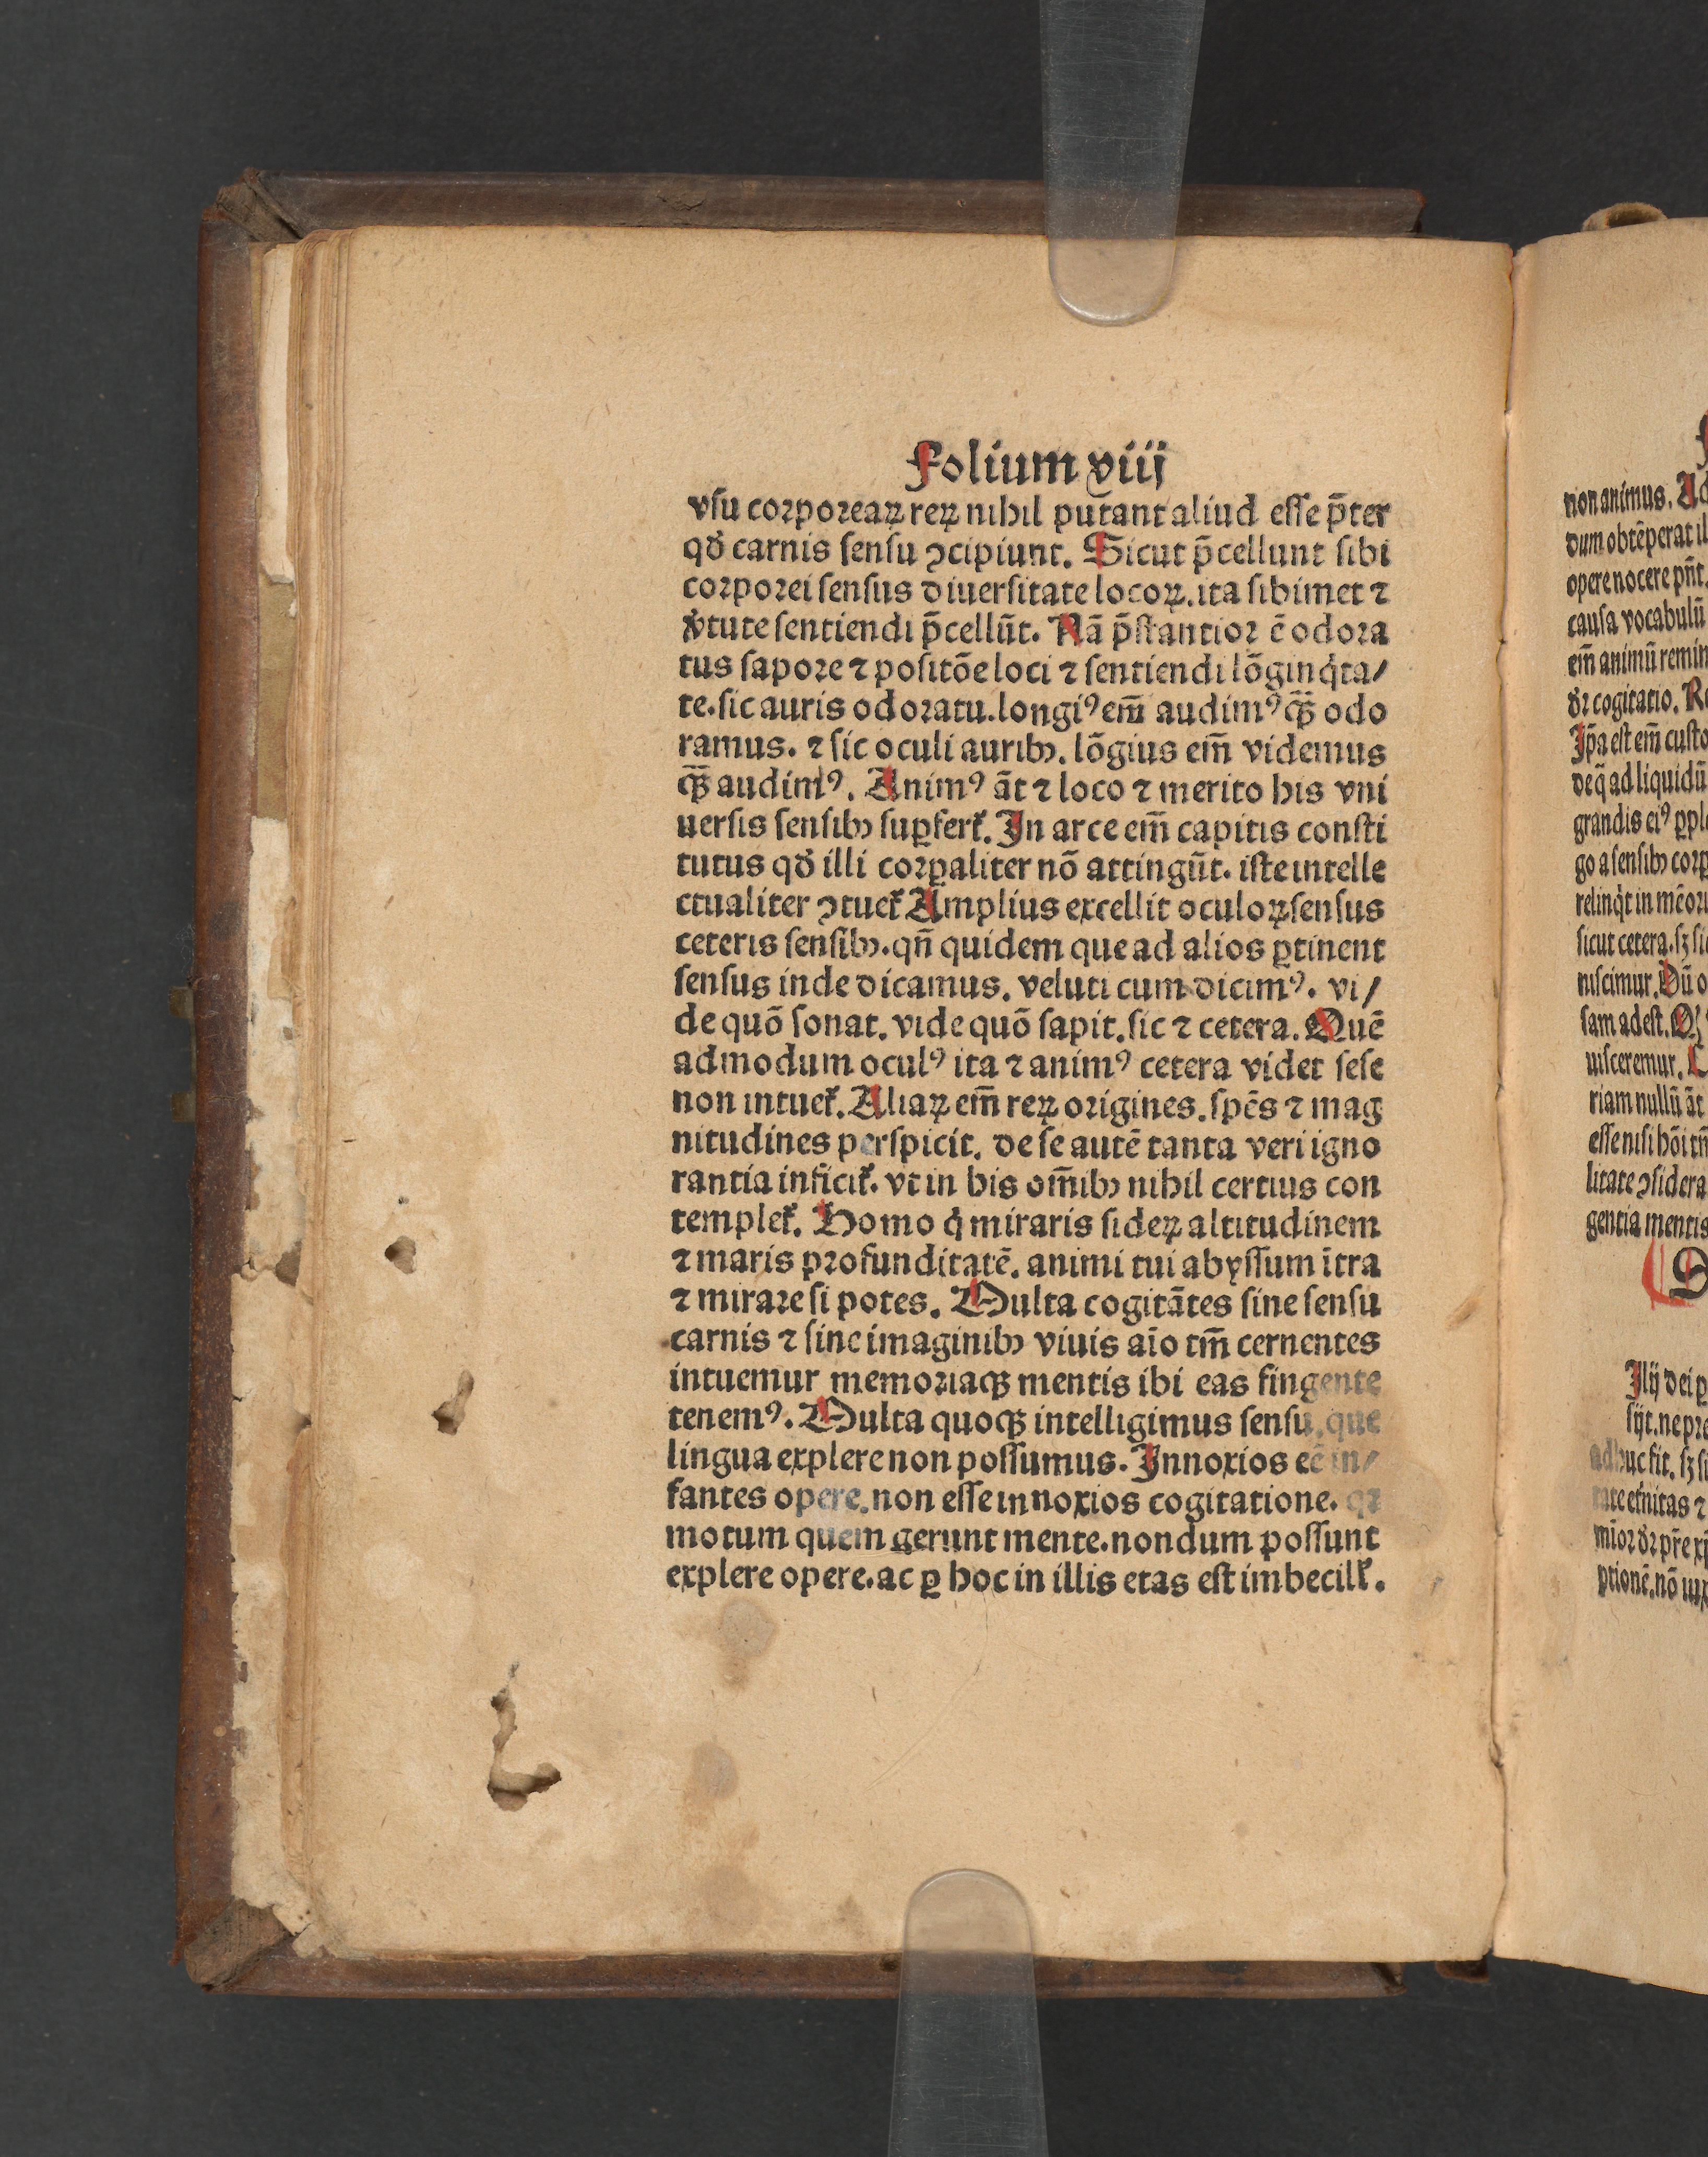 Folium viij
vſu corporeaꝝ reꝝ nihil putant aliud eſſe p̄ter
qð carnis ſenſu ↄcipiunt. Sicut p̄cellunt ſibi
corporei ſenſus diuerſitate locoꝝ. ita ſibimet ⁊
v̓tute ſentiendi p̄cellūt. Nā p̄ſtantior ē odora
tus ſapore ⁊ poſitōe loci ⁊ ſentiendi lōginq̇ta/
te. ſic auris odoratu. longiꝰ em̄ audimꝰ qꝫ̄ odo
ramus. ⁊ ſic oculi auribꝫ. lōgius em̄ videmus
qꝫ̄ audimꝰ. Animꝰ āt ⁊ loco ⁊ merito his vni
uerſis ſenſibꝫ ſuꝑferẜ. In arce em̄ capitis conſti
tutus qð illi corꝑaliter nō attingūt. iſte intelle
ctualiter ↄtueẜ Amplius excellit oculoꝝ ſenſus
ceteris ſenſibꝫ. qn̄ quidem que ad alios ꝑtinent
ſenſus inde dicamus. veluti cum dicimꝰ. vi/
de quō ſonat. vide quō ſapit. ſic ⁊ cetera. Quē
admodum oculꝰ ita ⁊ animꝰ cetera videt ſeſe
non intueẜ. Aliaꝝ em̄ reꝝ origines. ſpēs ⁊ mag
nitudines perſpicit. de ſe autē tanta veri igno
rantia inficiẜ. vt in his om̄ibꝫ nihil certius con
templeẜ. Homo q̇ miraris ſideꝝ altitudinem
⁊ maris profunditatē. animi tui abyſſum ītra
⁊ mirare ſi potes. Multa cogitātes ſine ſenſu
carnis ⁊ ſine imaginibꝫ viuis aīo tm̄ cernentes
intuemur memoriaqꝫ mentis ibi eas fingente
tenemꝰ. Multa quoqꝫ intelligimus ſenſu. que
lingua explere non poſſumus. Innoxios eē in/
fantes opere. non eſſe innoxios cogitatione. qꝛ
motum quem gerunt mente. nondum poſſunt
explere opere. ac ꝑ hoc in illis etas eſt imbecillẜ.
non animus. Ad
dum obtēperat il
opere nocere pn̄t.
cauſa vocabulū
em̄ animū remin
ðr cogitatio. Re
Ip̄a eſt em̄ cuſto
de q̄ ad liquidū
grandis eiꝰ ꝑple
go a ſenſibꝫ corꝑ
relinq̇t in mēori
ſicut cetera. ſꝫ ſi
niſcimur. Dū o
ſam adeſt.
uiſceremur.
riam nullū āt
eſſe niſi hōi tm̄
litate ↄſidera
gentia mentis
Ilij dei ꝑ
ſijt. ne pre
adhuc fit. ſꝫ ſi